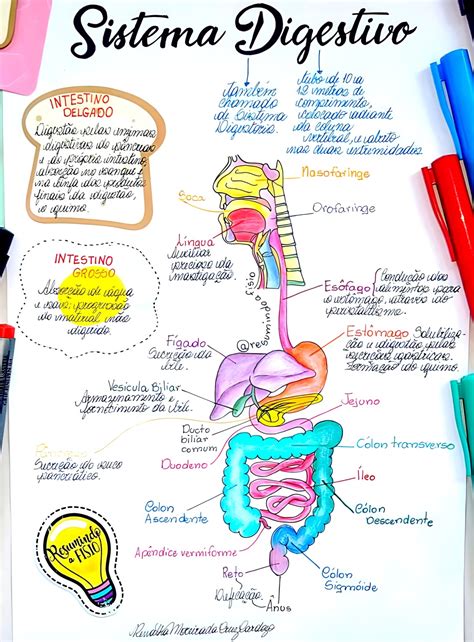 Sistema Digestivo
também
chamado
de Sistema
Digestório.
tubo de 10 a
12 metros de
comprimento,
colocado adiante
da coluna
vertebral, e aberto
nas duas extremidades
INTESTINO
DELGADO
Digestão pelas enzimas
digestivas do pâncreas
e do próprio intestino,
absorção no sangue e
na linfa dos produtos
finais da digestão,
o quimo.
INTESTINO
GROSSO
Absorção de água
e sais, progressão
do material não
digerido.
Nasofaringe
Boca
Orofaringe
Língua
Auxiliar
precioso da
mastigação.
Esôfago
Condução dos
alimentos para
o estômago, através do
peristaltismo
Fígado
Secreção da
bile.
Estômago Solubilização
e digestão pelas
secreções gástricas.
Formação do quimo.
Vesícula Biliar
Armazenamento e
fornecimento da bile.
Jejuno
Ducto
biliar
comum
Duodeno
Secreção do suco
pancreático.
Cólon transverso
Íleo
Cólon
Ascendente
Cólon
Descendente
Apêndice vermiforme
Cólon
Sigmóide
Reto
Defecação.
Ânus
Resumindo
a FISIO